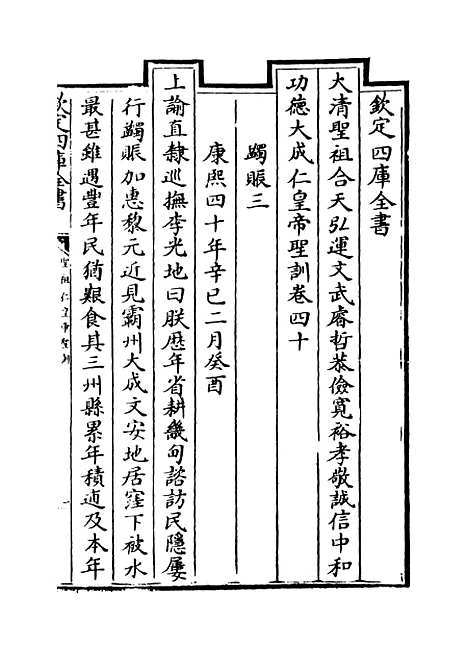 欽定四庫全書
大清聖祖合天弘運文武睿哲恭儉寬裕孝敬誠信中和
功德大成仁皇帝聖訓卷四十
蠲賑三
康熙四十年辛巳二月癸酉
上諭直隸巡撫李光地曰朕歷年省耕畿甸諮訪民隱屢
行蠲賑加惠黎元近見霸州大成文安地居窪下被水
最甚雖遇豐年民猶艱食其三州縣累年積逋及本年
欽定四庫全書
聖祖仁皇帝聖訓
一